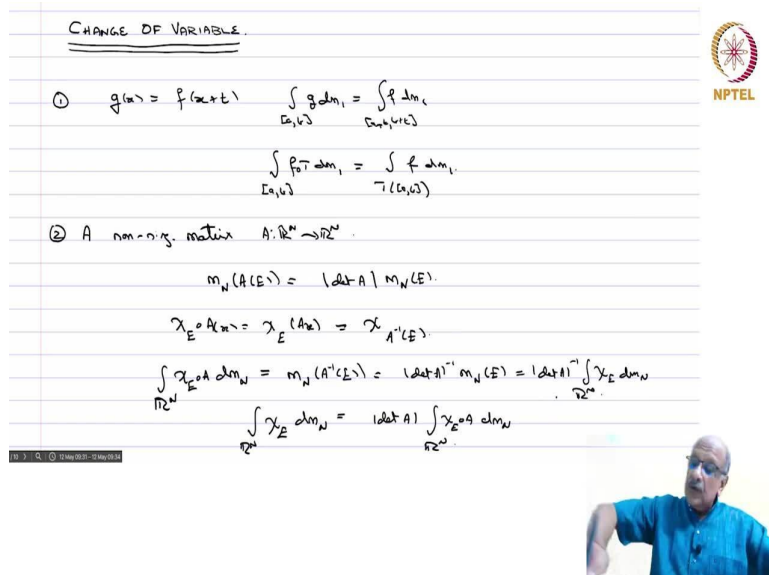 CHANGE OF VARIABLE.
① g(x) = f(x+t) ∫_{[a,b]} g dm₁ = ∫_{[a+t,b+t]} f dm₁
∫_{[a,b]} f∘T dm₁ = ∫_{T([a,b])} f dm₁.
② A non-sing. matrix A: ℝᴺ → ℝᴺ.
m_N(A(E)) = |det A| m_N(E).
χ_E∘A(x) = χ_E(Ax) = χ_{A⁻¹(E)}.
∫_{ℝᴺ} χ_E∘A dm_N = m_N(A⁻¹(E)) = |det A|⁻¹ m_N(E) = |det A|⁻¹ ∫_{ℝᴺ} χ_E dm_N
∫_{ℝᴺ} χ_E dm_N = |det A| ∫_{ℝᴺ} χ_E∘A dm_N
NPTEL
12 May 09:31 - 12 May 09:34